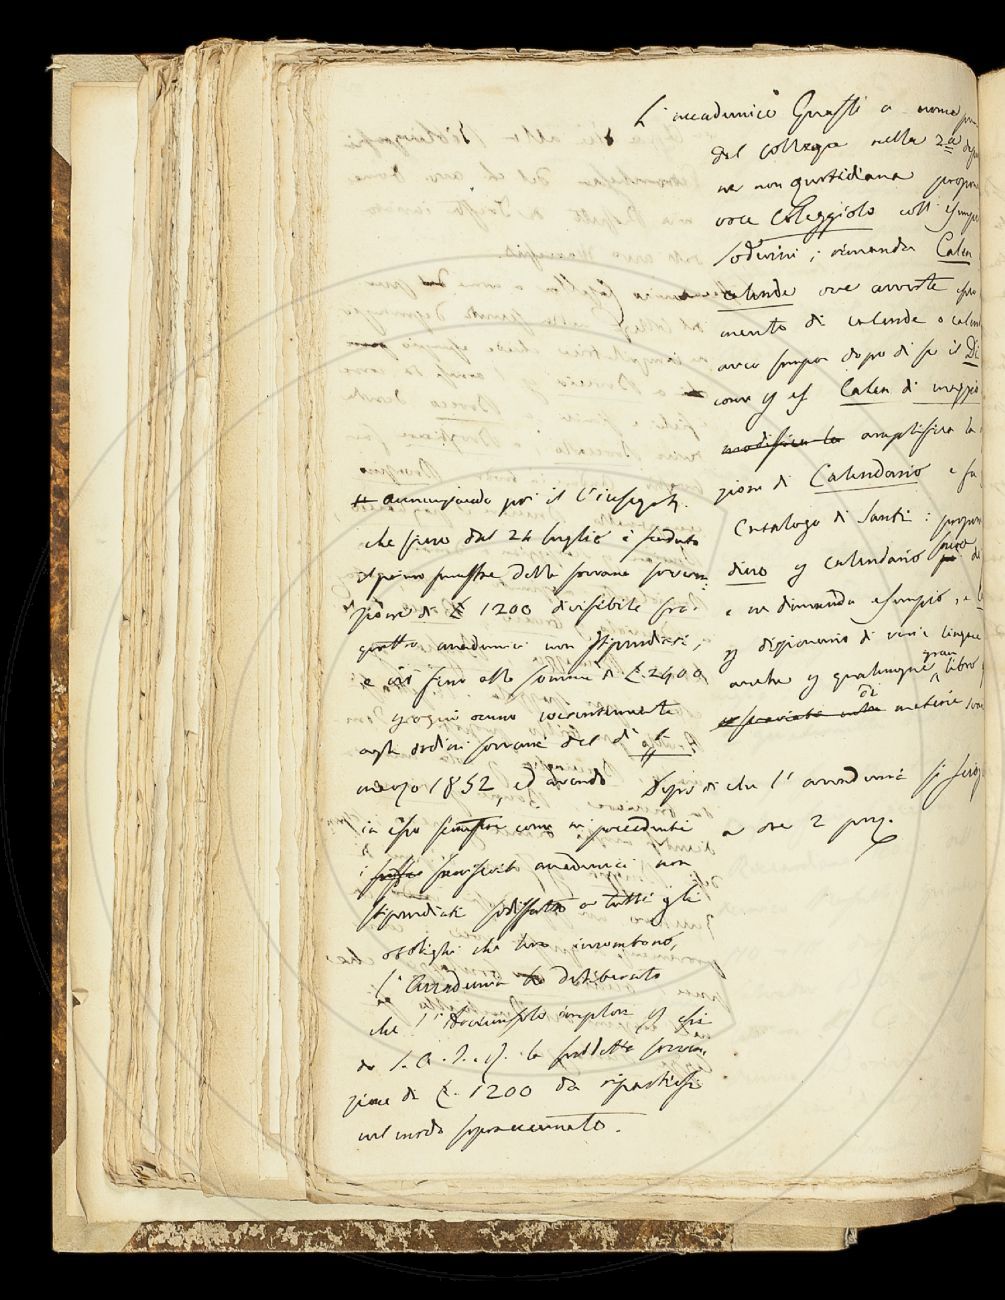 L'accademico Guasti a nome
del collega nella 2a
ne non quotidiana propone
voce Caleggiolo coll'
Soderini; rimanda Calen
calende ove avverte
mento di calende o calen
avea sempre dopo di se il Di
come p es Calen di maggio
modifica la amplifica la
zione di Calendario e fa
Catalogo di Santi: propone
dico p calendario
e ne dimanda esempio,
p dizionario di varie lingue
anche p qualunque gran libro
di materie
Dopo di che l'accademia si scioglie
a ore 2 pom.
# annunziando poi il
che fino dal 24 luglio è scaduto
il primo semestre della sovrana
zione di £ 1200 divisibile fra
quattro accademici non stipendiati,
e ciò fino alla somma di £. 2400
p ogni anno coerentemente
agli ordini sovrani del dì
marzo 1852, ed avendo
in esso semestre come ne' precedenti
i suddetti accademici non
stipendiati sodisfatto a tutti gli
obblighi che loro incombono,
l'Accademia ha deliberato
che l'Arciconsolo implori p essi
da S. A. I. e R. la suddetta
zione di £. 1200 da ripartirsi
nel modo sopraccennato.